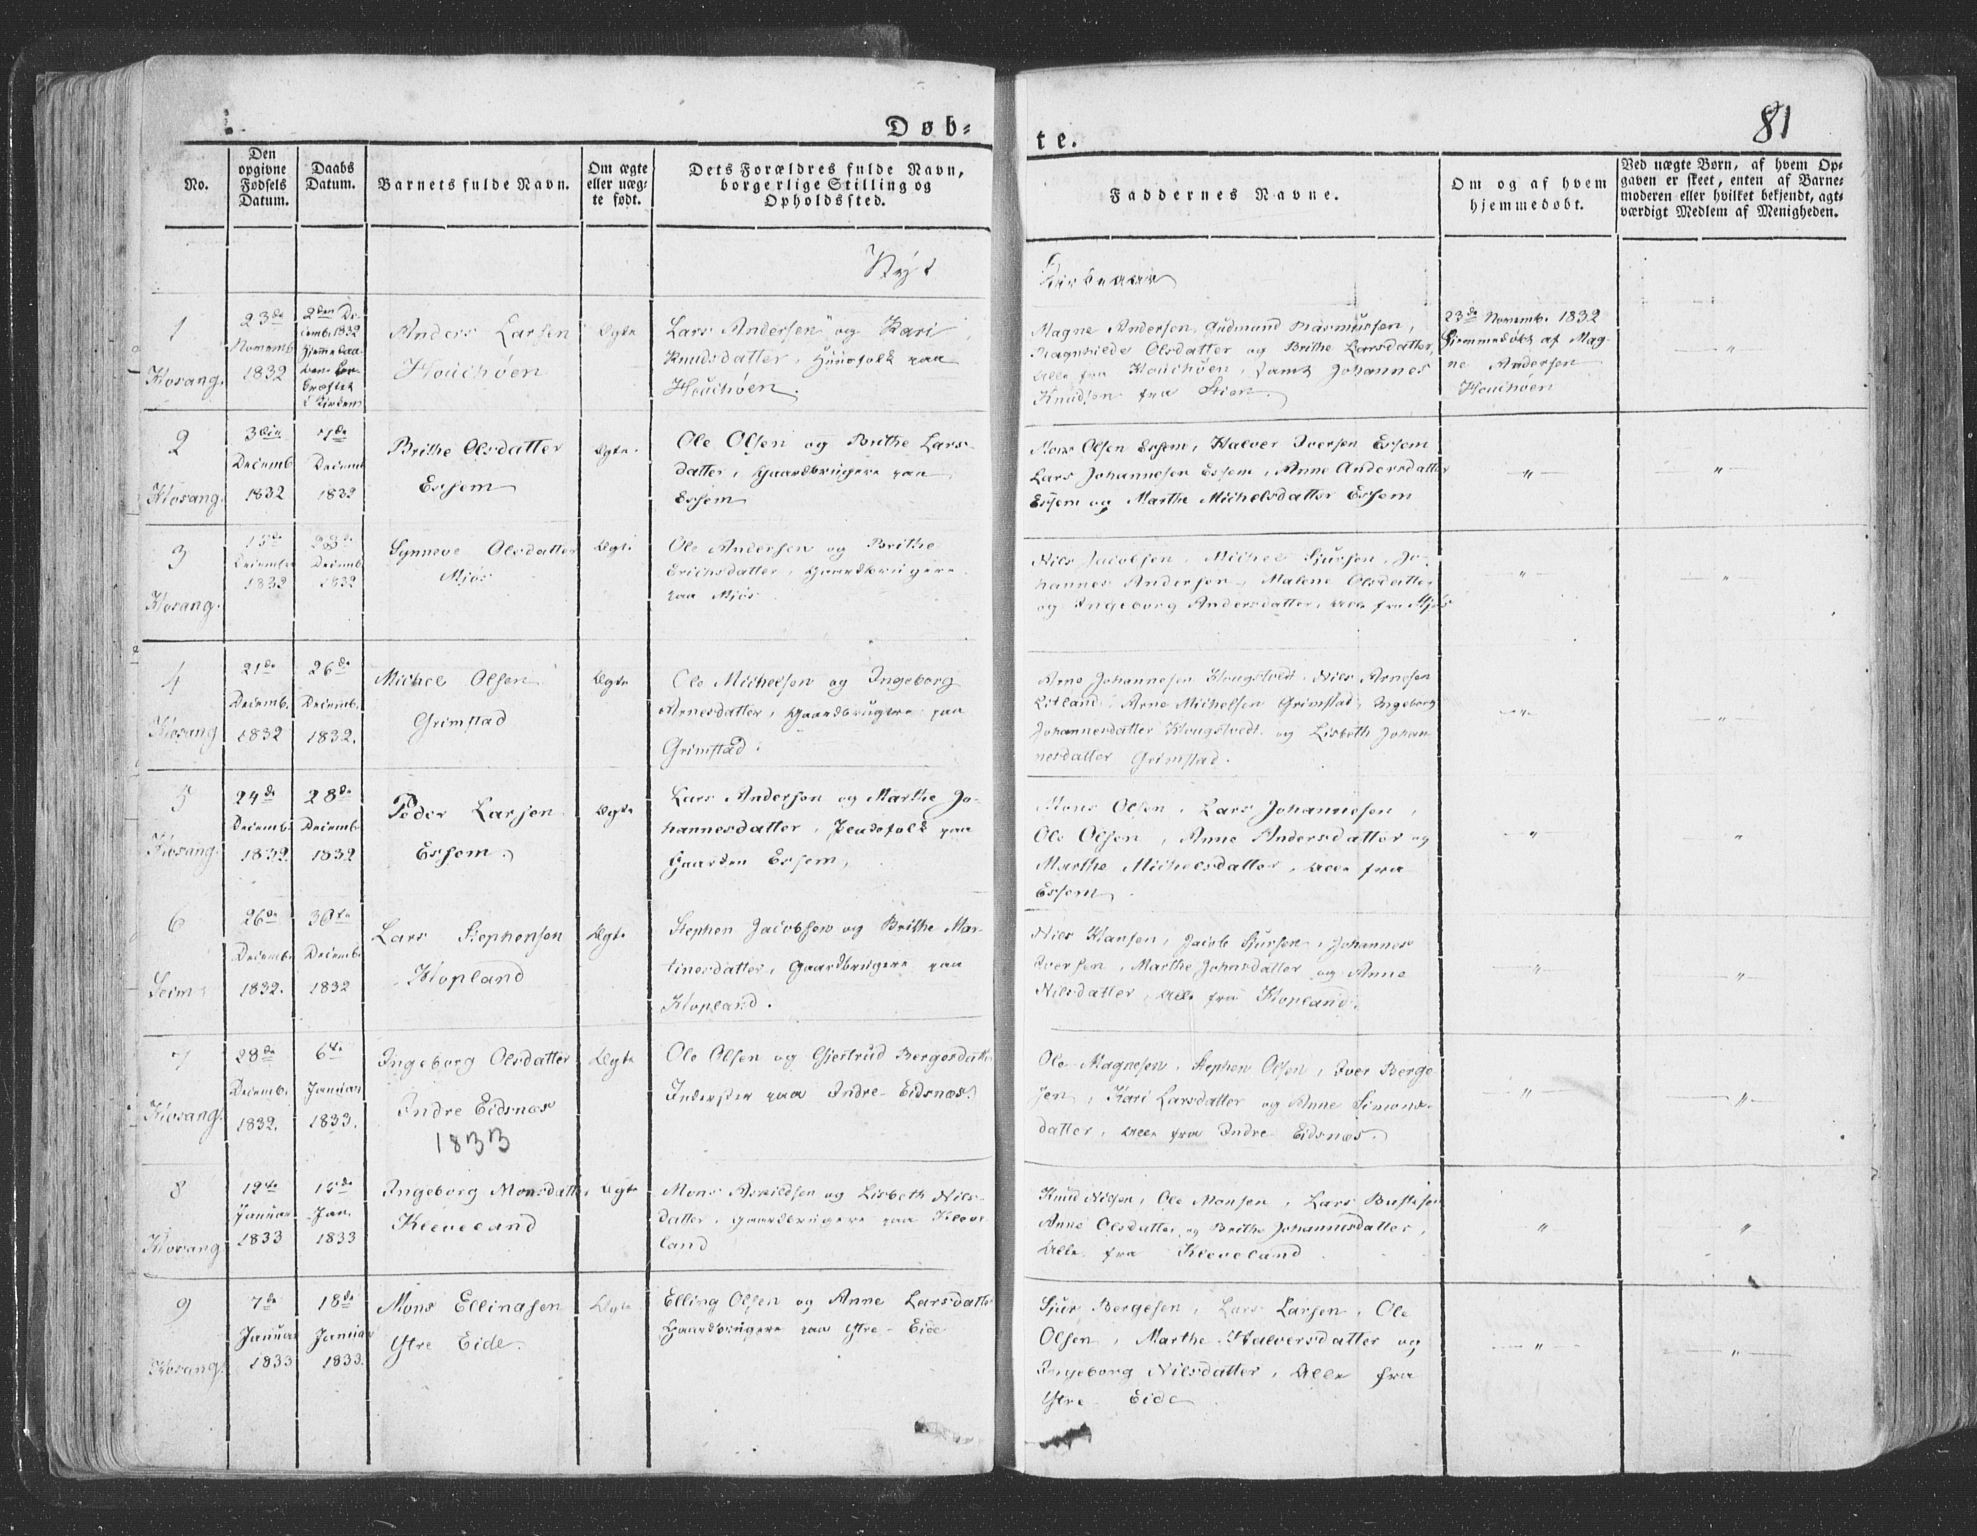 Døb-
te.
81
No.
Den
opgivne
Fødsels
Datum.
Daabs
Datum.
Barnets fulde Navn.
Om ægte
eller uæg-
te født.
Dets Forældres fulde Navn,
borgerlige Stilling og
Opholdssted.
Faddernes Navne.
Om og af hvem
hjemmedøbt.
Ved uægte Børn, af hvem Op-
gaven er skeet, enten af Barne-
moderen eller hvilket bekjendt, agt-
værdigt Medlem af Menigheden.
Nyt
Kirkeaar
1
Hosang.
23de
Novemb.
1832
2den De-
cemb. 1832
Hjemmedaa-
ben
i Kirken
Anders Larsen
Houchøen
Ægte
Lars Andersen og Kari
Knudsdatter, Huusfolk paa
Houchøen.
Magne Andersen, Gudmund Rasmussen,
Ragnhilde Olsdatter og Brithe Larsdatter,
alle fra Houchøen, samt Johannes
Knudsen fra Stien.
23de Novemb. 1832
hjemmedøbt af Mag-
ne Andersen
Houchøen
"
2
Hosang.
3die
Decemb.
1832
Decemb
1832
Brithe Olsdatter
Essem
Ægte.
Ole Olsen og Brithe Lars-
datter, Gaardbrugere paa
Essem
Mons Olsen Essem, Halver Iversen Essem
Lars Johannesen Essem, Anne Andersdatter
Essem og Marthe Michelsdatter Essem
"
"
3
Hosang.
15de
December
1832
28de
Decemb
1832
Synneve Olsdatter
Mjøs
Ægte
Ole Andersen og Brithe
Erichsdatter, Gaardbrugere
paa Mjøs
Nils Jacobsen, Michel Sjursen, Jo-
hannes Andersen, Malene Olsdatter
og Ingeborg Andersdatter, alle fra Mjøs
"
"
4
Hosang
21de
Decemb.
1832
26de
Decemb.
1832.
Michel Olsen
Grimstad
Ægte
Ole Michelsen og Ingeborg
Arnesdatter, Gaardbrugere paa
Grimstad.
Arne Johannesen Hougstvedt, Nils Arnesen
Litland, Arne Michelsen Grimstad, Ingeborg
Johannesdatter Hougstvedt og Lisbeth Johan-
nesdatter Grimstad.
"
"
5
Hosang.
24de
Decemb.
1832
28de
Decemb
1832
Peder Larsen
Essem.
Ægte
Lars Andersen og Marthe Jo-
hannesdatter, Huusfolk paa
Gaarden Essem,
Mons Olsen, Lars Johannesen,
Ole Olsen, Anne Andersdatter og
Marthe Michelsdatter, alle fra
Essem.
"
"
6
Seim
26de
Decemb.
1832.
30te
Decemb.
1832
Lars Stephensen
Hopland
Ægte
Stephen Jacobsen og Brithe Mar-
tinesdatter, Gaardbrugere paa
Hopland.
Nils Hansen, Jacob Sjursen, Johannes
Iversen, Marthe Johnsdatter og Anne
Nilsdatter, alle fra Hopland.
"
"
7
Hosang.
28de
Decemb.
1832.
6te
Januar
1833.
Ingeborg Olsdatter
Indre Eidsnæs
1833
Ægte
Ole Olsen og Gjertrud Bergesdatter
Inderster paa Indre Eidsnæs.
Ole Magnesen, Stephen Olsen, Iver Berge-
sen, Kari Larsdatter og Anne Simons-
datter, alle fra Indre Eidsnæs.
"
"
8
Hosang
12te
Januar
1833
15de
Jan.
1833
Ingeborg Monsdatter
Kleveland
Ægte
Mons Askildsen og Lisbeth Nils-
datter, Gaardbrugere paa Kleve-
land
Knud Nilsen, Ole Monsen, Lars
Anne Olsdatter og Brithe Johannesdatter,
alle fra Kleveland
"
"
9
Hosang.
7de
Januar
1833
18de
Januar
1833.
Mons Ellingsen
Ytre Eide.
Ægte
Elling Olsen og Anne Larsdatter
Gaardbrugere paa Ytre Eide
Sjur Bergesen, Lars Larsen, Ole
Olsen, Marthe Halversdatter og
Ingeborg Nilsdatter, alle fra
Ytre Eide
"
"